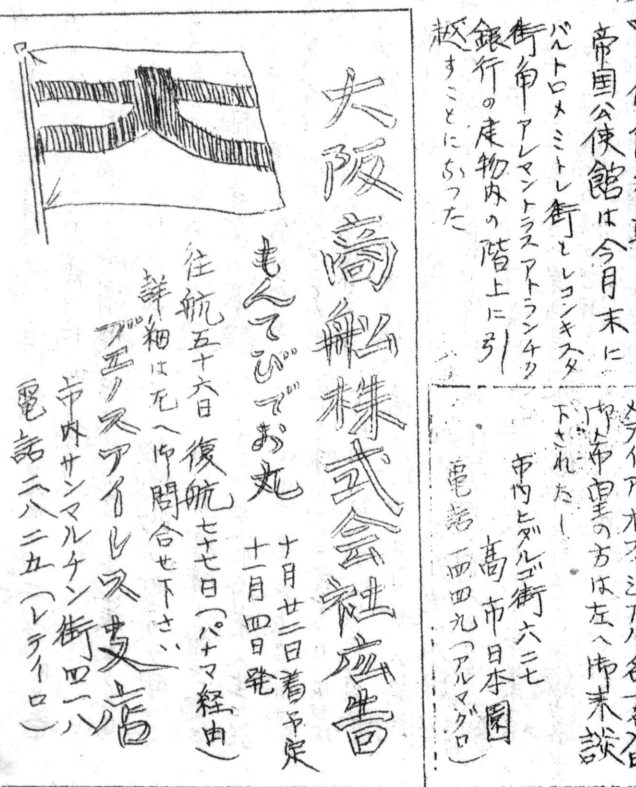 帝国公使館は今月末に
バルトロメミトレ街とレコンキスタ
街角アレマントラスアトランチカ
銀行の建物内の階上に引
越すことになった
御希望の方は左へ御来談
下されたし
市内ヒダルゴ街六二七
高市日本園
電話 一四四九(アルマグロ)
大阪商船株式会社広告
もんてびでお丸 十月廿二日着予定
十一月四日発
往航五十六日 復航七十七日(パナマ経由)
詳細は左へ御問合せ下さい
ブエノスアイレス支店
市内サンマルチン街四一八
電話二八二五(レテイロ)